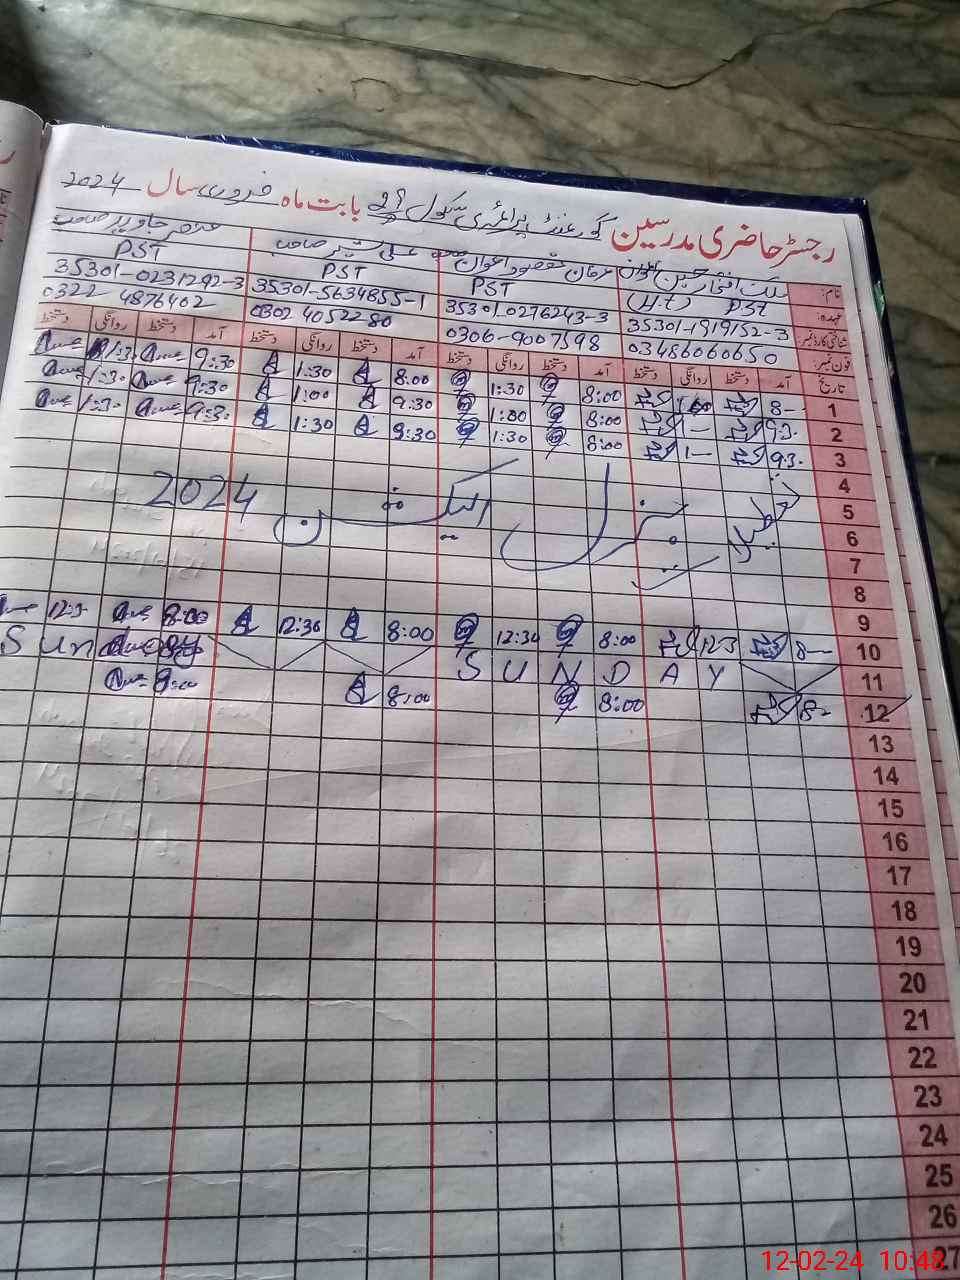 رجسٹر حاضری مدرسین گورنمنٹ پرائمری سکول بابت ماہ فروری سال 2024
نام: عرفان مقصود اعوان علی شیر صاحب جاوید صاحب
عہدہ: PST (H.t) PST PST PST
شناختی کارڈ نمبر: 35301-1919152-3 35301-0276243-3 35301-5634855-1 35301-0231292-3
فون نمبر: 03486060650 0306-9007598 0302 4052280 0322 4876402
تاریخ آمد دستخط روانگی دستخط آمد دستخط روانگی دستخط آمد دستخط روانگی دستخط آمد دستخط روانگی دستخط
1 8- 8:00 1:30 8:00 1:30 9:30 1:3
2 9:3 8:00 1:00 9:30 1:00 9:30 1:30
3 9:3 8:00 1:30 9:30 1:30 9:3 1:30
4
5 تعطیلات جنرل الیکشن 2024
6
7
8
9
10 8- 12:3 8:00 12:30 8:00 12:30 8:00 12:3
11 SUNDAY Sunday
12 8- 8:00 8:00 8:00
13
14
15
16
17
18
19
20
21
22
23
24
25
26
27
12-02-24 10:48